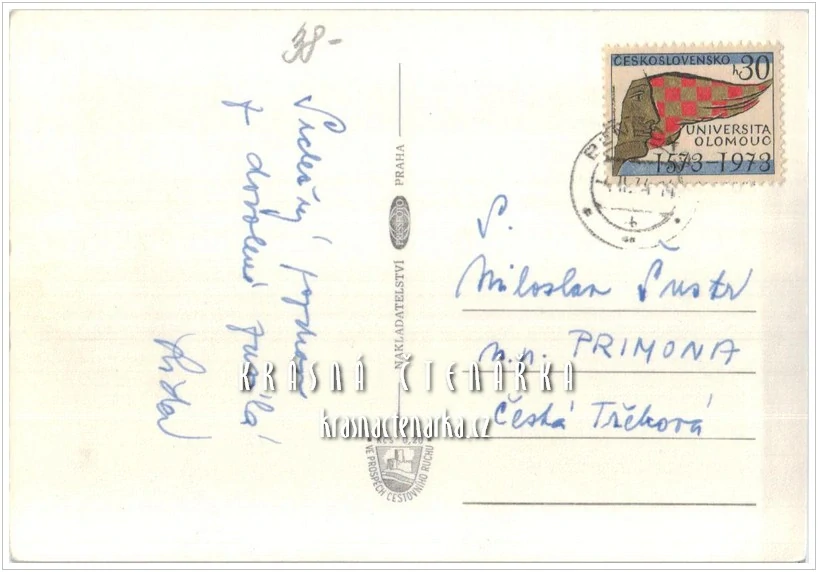 38-
Srdečný pozdrav
z dovolené zasílá
ČESKOSLOVENSKO
h 30
UNIVERSITA
OLOMOUC
1573-1973
NAKLADATELSTVÍ PRESSFOTO PRAHA
S.
Miloslav Šustr
n.p. PRIMONA
Česká Třebová
KRÁSNÁ ČTENÁŘKA
krasnactenarka.cz
Kčs 0,20
VE PROSPĚCH CESTOVNÍHO RUCHU